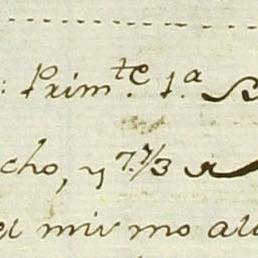 : Prim.te 1.a
cho, y 7.1/3
el mismo al